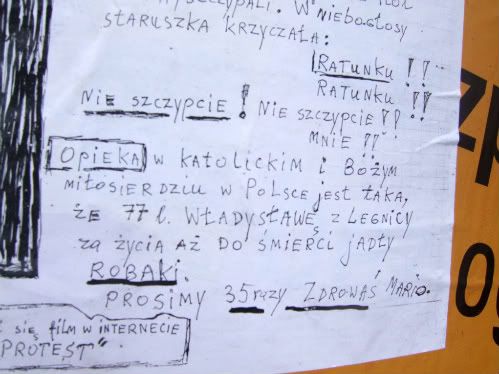 W NIEBOGŁOSY
STARUSZKA KRZYCZAŁA:
RATUNKU!!
RATUNKU!!
NIE SZCZYPCIE! NIE SZCZYPCIE!!
MNIE!!
OPIEKA W KATOLICKIM I BOŻYM
MIŁOSIERDZIU W POLSCE JEST TAKA,
ŻE 77 l. WŁADYSŁAWĘ Z LEGNICY
ZA ŻYCIA AŻ DO ŚMIERCI JADŁY
ROBAKI.
PROSIMY 35 razy ZDROWAŚ MARIO.
SIĘ FILM W INTERNECIE
PROTEST"